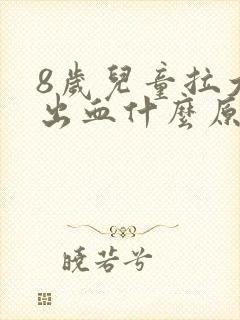 8歲兒童拉大
出血什麼原
曉若兮